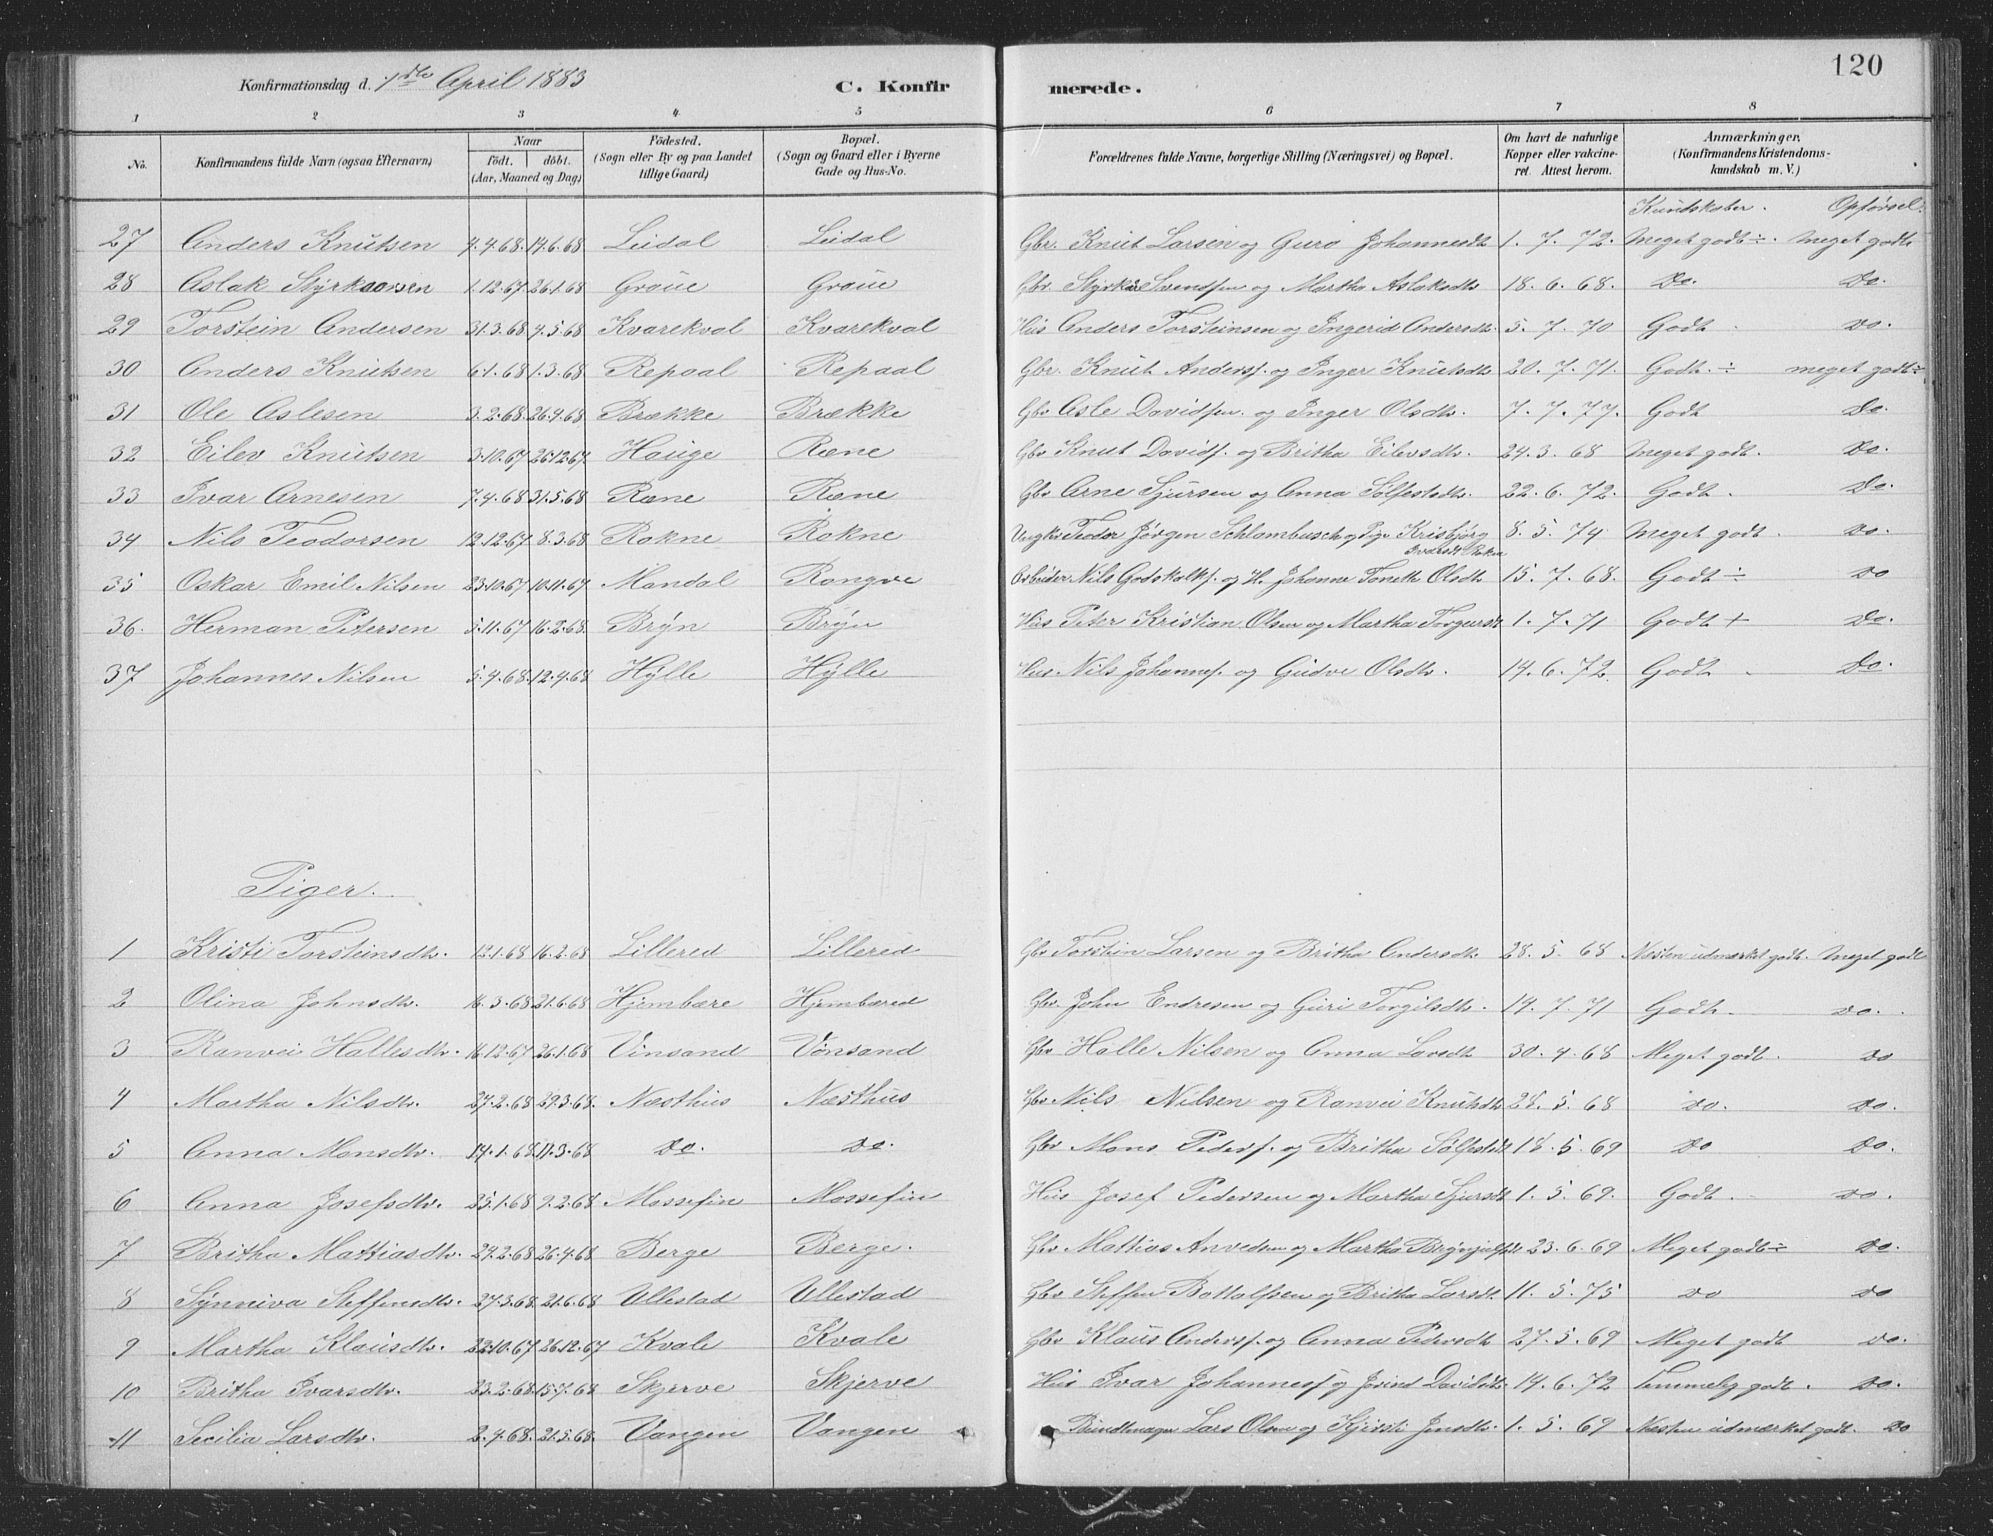 120
Konfirmationsdag d. 1ste April 1883 C. Konfir merede.
1 2 3 4. 5 6 7 8
No. Konfirmandens fulde Navn (ogsaa Efternavn) Naar født. døbt. (Aar, Maaned og Dag) Fødested. (Sogn eller By og paa Landet tillige Gaard) Bopæl. (Sogn og Gaard eller i Byerne Gade og Hus-No. Forældrenes fulde Navne, borgerlige Stilling (Næringsvei) og Bopæl. Om havt de naturlige Kopper eller vakcineret. Attest herom. Anmærkninger, (Konfirmandens Kristendomskundskab m. V.)
Kundskaber. Opførsel.
27 Anders Knutsen 4.4.68. 14.6.68 Leidal Leidal Gbr. Knut Larsen og Guro Johannesdt 1. 7. 72. Meget godt ÷. Meget godt
28 Aslak Styrkaarsen 1.12.67 26.1.68 Groue Groue Gbr. Styrkår Svendsen og Martha Aslaksdtr 18. 6. 68. Do. Do.
29 Torstein Andersen 31.3.68 4.5.68 Kvarekval Kvarekval Hus Anders Torsteinsen og Ingerid Andersdt. 5. 7. 70 Godt. Do.
30 Anders Knutsen 6.1.68 1.3.68 Repaal Repaal Gbr. Knut Andersf. og Inger Knutsdtr 20. 7. 71. Godt. ÷ meget godt ÷
31 Ole Aslesen 3.2.68 26.4.68 Brække Brække Gbr Asle Davidsen. og Inger Olsdtr. 7. 7. 77. Godt Do.
32 Eilev Knutsen 3.10.67 26.12.67 Hauge Ræne Gbr Knut Davidf. og Britha Eilevsdtr. 24. 3. 68 Meget godt. Do.
33 Ivar Arnesen 7.4.68 31.5.68 Ræne Ræne Gbr Arne Sjursen og Anna Sølfestdtr. 22. 6. 72. Godt. Do.
34 Nils Teodorsen 12.12.67 8.3.68 Rokne Rokne Ungkr Teodor Jørgen Schlambusch og Pige Krisbjørg Ivarsdt Rokne 8. 5. 74 Meget godt. Do.
35 Oskar Emil Nilsen 23.10.67 10.11.67 Mandal Rongve Arbeider Nils Godskalkf. og H. Johanne Tonette Olsdt. 15. 7. 68. Godt ÷ Do
36. Herman Petersen 5.11.67 16.2.68. Bryn Bryn Hus Peter Kristian Olsen og Martha Torgersdt 1. 7. 71 Godt + Do.
37 Johannes Nilsen 5.4.68. 12.4.68 Hylle Hylle Hus Nils Johannesf. og Gudve Olsdtr. 14. 6. 72. Godt. Do
Piger.
1 Kristi Torsteinsdtr. 12.1.68 16.2.68 Lillered Lillered Gbr Torstein Larsen og Britha Andersdtr. 28. 5. 68 Næsten udmærket godt. Meget godt
2 Olina Johnsdtr. 16.3.68 21.6.68 Hjembære Hjembæred Gbr. John Endresen og Guri Torgilsdtr. 14. 7. 71 Godt. Do.
3 Ranvei Hallesdtr. 16.12.67 26.1.68 Vinsand Vinsand Gbr Halle Nilsen og Anna Larsdt 30. 4. 68 Meget godt. Do
4 Martha Nilsdtr. 27.2.68 29.3.68. Næsthus Næsthus Gbr Nils Nilsen og Ranvei Knutsdtr 28. 5. 68 Do. Do.
5 Anna Monsdtr. 14.1.68 17.3.68 Do. Do. Gbr Mons Pedersf. og Britha Sølfestdt 18. 5. 69 Do Do.
6 Anna Josefsdtr. 25.1.68 9.2.68 Mossefin Mossefin Hus Josef Pedersen og Martha Sjursdt 1. 5. 69. Godt. Do.
7 Britha Mattiasdtr. 24.2.68 26.4.68 Berge Berge. Gbr Mattias Anvedsen og Martha Brynjulfsdt 23. 6. 69 Meget godt ÷ Do.
8 Synniva Steffensdtr. 27.3.68 21.6.68 Ullestad Ullestad Gbr Steffen Bottolfsen og Britha Larsdt. 11. 5. 75 Do Do
9 Martha Klausdtr. 22.10.67 26.12.67 Kvale Kvale Gbr Klaus Andersf. og Anna Pedersdt 27. 5. 69 Meget godt Do.
10 Britha Ivarsdtr. 23.2.68 15.4.68 Skjerve Skjerve Hus Ivar Johannesf og Jorind Davidsdtr. 14. 6. 72 Temmelig godt. Do.
11 Secilia Larsdtr. 2.4.68. 21.5.68. Vangen Vangen Bundtmager Lars Olsen og Kjersti Jensdtr. 1. 5. 69 Næsten udmærket godt. Do